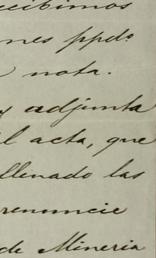 ecibimos
ones ppdo
nota.
adjunta
l acta, que
llenado las
renuncie
de Mineria